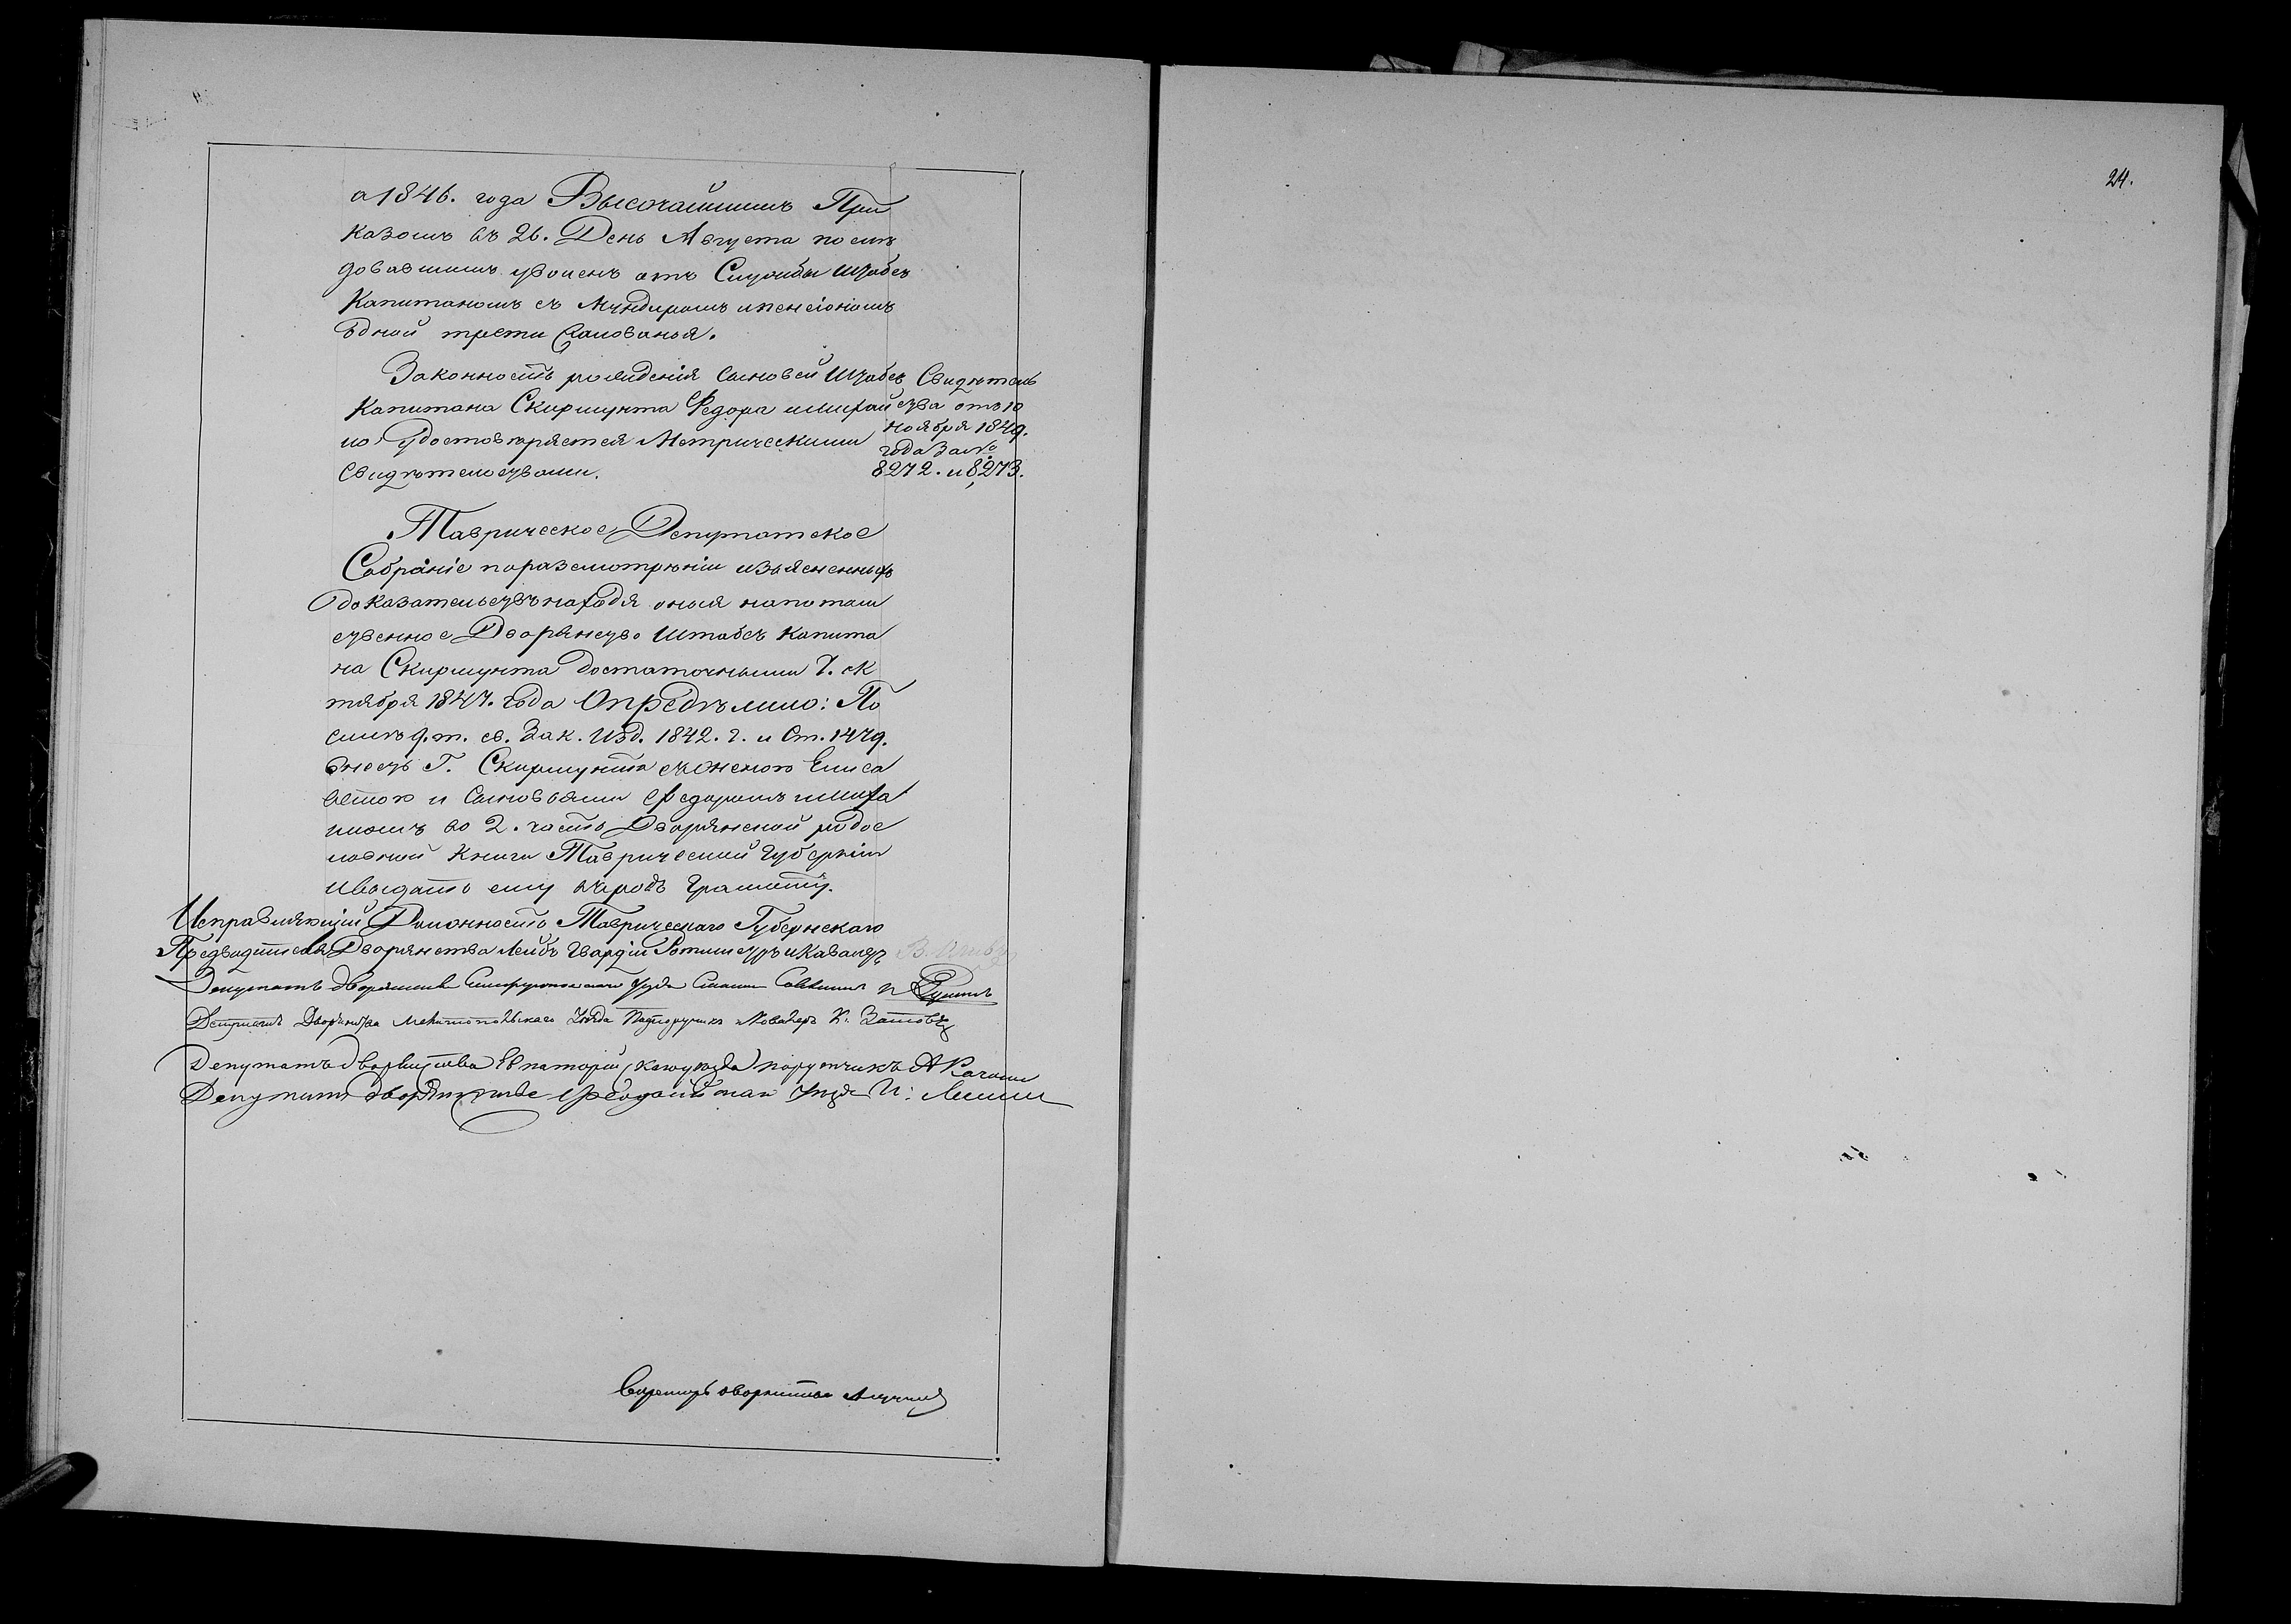 а 1846. года Высочайшимъ При
казомъ въ 26. День Августа послѣ
довавшимъ уволенъ отъ Службы Штабсъ
Капитаномъ съ Мундиромъ и пенсіономъ
одной трети Жалованья.
Законность рожденія Сыновей Штабсъ
Капитана Скирмунта Федора и Михаи
ла Удостовѣряется Метрическими
Свидѣтельствами.
Свидѣтель
ства отъ 10
ноября 1849.
года За №
8272. и 8273.
Таврическое Депутатское
Собраніе по разсмотрѣніи изъясненныхъ
доказательствъ находя оныя на потом
ственное Дворянство Штабсъ Капита
на Скирмунта достаточными 7. Ок
тября 1847. года Опредѣлило: По
силѣ 9. т. св. Зак. Изд. 1842. г. и Ст. 1479.
внесть Г. Скирмунта съ женою Елиса
ветою и Сыновьями Федоромъ и Миха
иломъ во 2. часть Дворянской родос
ловной Книги Таврической Губерніи
и выдать ему на родъ Грамоту.
Исправляющій Должность Таврическаго Губернскаго
Предводителя Дворянства Лейбъ Гвардіи Ротмистръ и Кавалеръ
Депутатъ дворянства Симферопольскаго Уѣзда
Депутатъ Дворянства Мелитопольскаго Уѣзда Подпоручикъ и Кавалеръ К.
Депутатъ дворянства Евпаторійскаго уѣзда поручикъ А
Депутатъ дворянства Феодосійскаго Уѣзда
Секретарь дворянства
24.